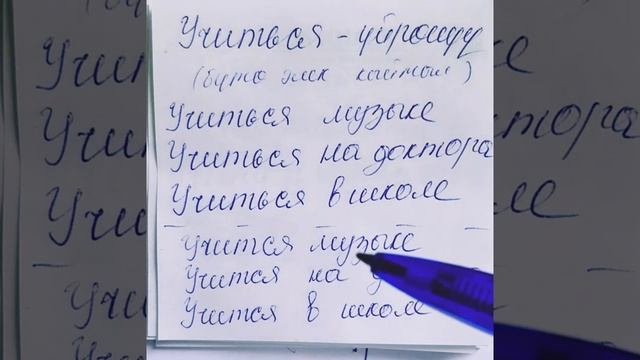 Учиться - үйрөнүү
(бүтө элек кыймыл)
Учиться музыке
Учиться на доктора
Учиться в школе
Учится музыке
Учится на
Учится в школе